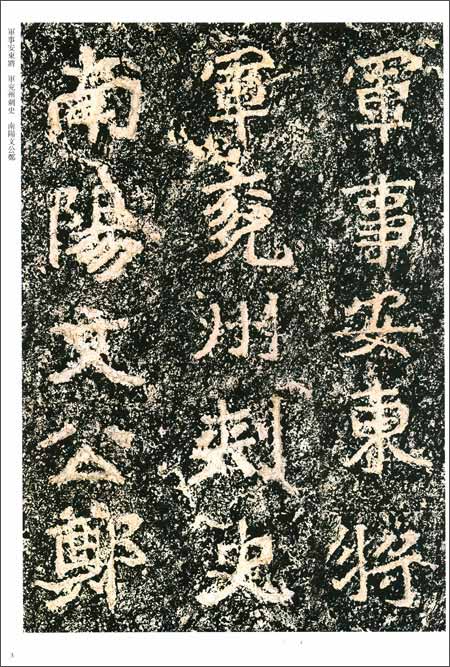 軍事安東將
軍兖州刺史
南陽文公鄭
軍事安東將　軍兖州刺史　南陽文公鄭
3